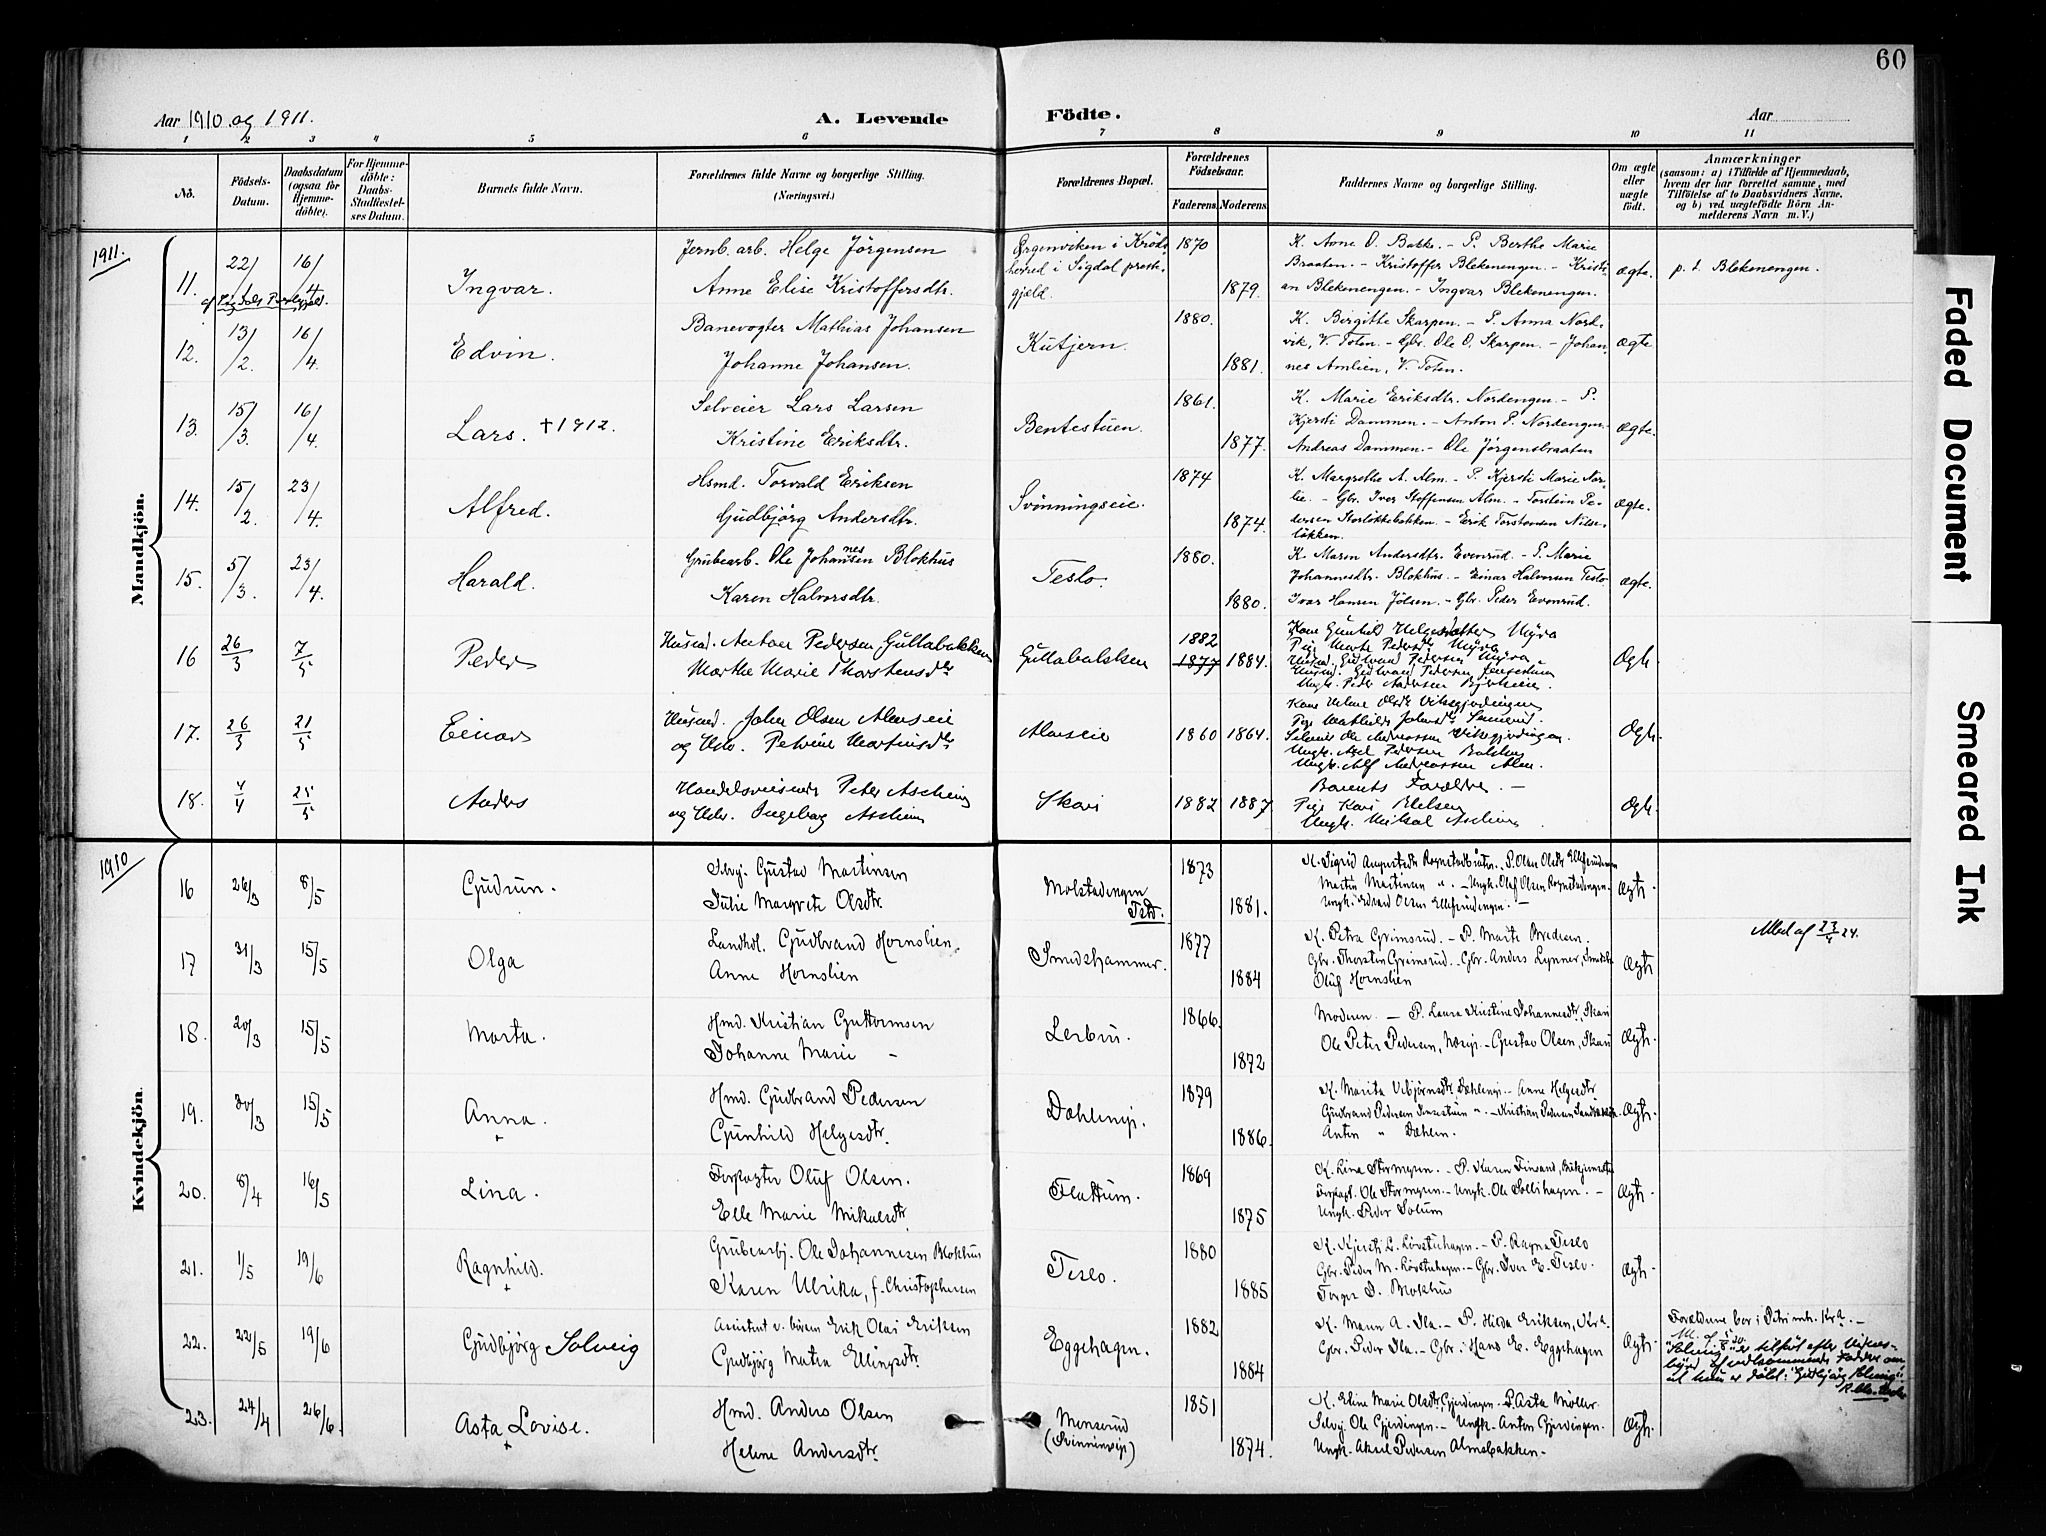 60
Aar 1910 og 1911.
A. Levende Födte.
Aar
1 2 3 4 5 6 7 8 9 10 11
No.
Födsels-Datum.
Daabsdatum (ogsaa for Hjemme-döbte).
For Hjemme-döbte: Daabs-Stadfæstel-ses Datum.
Barnets fulde Navn.
Forældrenes fulde Navne og borgerlige Stilling.
(Næringsvei.)
Forældrenes Bopæl.
Forældrenes Födselsaar.
Faderens. Moderens.
Faddernes Navne og borgerlige Stilling.
Om ægte eller uægte födt.
Anmærkninger
(saasom: a) i Tilfælde af Hjemmedaab,
hvem der har forrettet samme, med
Tilföielse af to Daabsvidners Navne,
og b) ved uægtefödte Börn An-
melderens Navn m. V.)
1911.
Mandkjön.
11. 22/1 16/4 Ingvar.
Jernb. arb. Helge Jörgensen
Anne Elise Kristoffersdtr.
Ørgenviken i Kröds-
herred i Sigdal preste-
gjeld.
1870 1879.
K. Anne O. Bakke. - P. Berthe Marie
Braaten. - Kristoffer Blekenengen. - Kristi-
an Blekenengen. - Ingvar Blekenengen.
Ægte. p. t. Blekenengen.
12. 13/2. 16/4. Edvin.
Banevogter Mathias Johansen
Johanne Johansen.
Kutjern.
1880. 1881.
K. Birgitte Skarpen. - P. Anna Nord-
vik, V. Toten. - Gbr. Ole O. Skarpen. - Johan-
nes Amlien, V. Toten.
Ægte
13. 15/3. 16/4. Lars. † 1912.
Selveier Lars Larsen
Kristine Eriksdtr.
Bentestuen.
1861. 1877.
K. Marie Eriksdtr. Nordengen. - P.
Kjersti Dammen. - Anton P. Nordengen.
Andreas Dammen. - Ole Jörgensbraaten
Ægte.
14. 15/2. 23/4. Alfred.
Hsmd. Torvald Eriksen
Gudbjörg Andersdtr.
Svönningseie.
1874 1874.
K. Margrethe A. Alm. - P. Kjersti Marie Nor-
lie. - Gbr. Iver Stoffensen Alm. - Torstein Pe-
dersen Storlökkebakken. - Erik Torstensen Nilse-
lökken.
Ægte.
15. 5/3. 23/4. Harald.
Grubearb. Ole Johannesen Blokhus
Karen Halvorsdtr.
Teslo.
1880. 1880.
K. Maren Andersdtr. Evenrud. - P. Marie
Johannesdtr. Blokhus. - Einar Halvorsen Teslo
Ivar Hansen Jölsen. - Gbr. Peder Evenrud.
Ægte.
16 26/3 7/5 Peder
Husmd. Anton Pedersen Gullabakken
Marthe Marie Thorstensdtr
Gullabakken
1882 1877 1884.
Kone Gunhild Helgesdatter Myra
Pige Marte Pedersdtr Myra
Husmd. Gudbrand Pedersen Myra
Husmd. Gudbrand Pedersen Jensestuen
Ungk. Peder Andersen Björkeeie.
Ægte.
17. 26/3 21/5 Einar
Husmd. Johan Olsen Almseie
og Hstr. Petrine Martinsdtr
Almseie
1860 1864.
Kone Helene Olsdtr Viksgjerdingen
Pige Mathilde Johnsdtr
Selveier Ole Andreassen Viksgjerdingen.
Ungk. Axel Pedersen
Ungk. Alf Andreassen Alm.
Ægte.
18. 4/4 25/5 Anders
Handelsreisende Peter Ascheim
og Hstr. Ingeborg Ascheim
Skari
1882 1887
Barnets Forældre. -
Pige Kari
Ungk. Mikal Ascheim
Ægte.
1910
Kvindekjön.
16 26/3 8/5 Gudrun.
Selvj. Gustav Martinsen
Julie Margrete Olsdtr.
Molstadengen
Teslo.
1873 1881.
K. Sigrid Augustsdtr Rognstadbraaten, P. Olea Olsdtr Ellefrudengen
Martin Martinsen " - Ungk. Olaf Olsen Rognstadengen.
Ungk. Edvard Olsen Ellefrudengen. -
Ægte.
17 31/3 15/5 Olga
Landhdl. Gudbrand Hornslien.
Anne Hornslien
Smedshammer.
1877 1884
K. Petra Grimsrud. - P. Marte Bredesen.
Gbr. Thorstin Grimsrud. - Gbr. Anders Lynner,
Oluf Hornslien
Ægte Med af 23/4 24.
18. 20/3 15/5 Marta.
Hmd. Kristian Guttormsen
Johanne Marie -
Lerbru.
1866. 1872
Moderen. - P. Laura Kristine Johannesdtr, Skari
Ole Peter Pedersen, - Gustav Olsen, Skari
Ægte.
19. 30/3 15/5 Anna.
+
Hmd. Gudbrand Pedersen
Gunhild Helgesdtr.
Dæhlinejr.
1879 1886.
K. Marita Vebjørnsdtr Dæhlenejr - Anne Helgesdtr
Gudbrand Pedersen Jensestuen " - Kristian Pedersen Sandbakken
Anton " Dæhlen.
Ægte.
20. 8/4 16/5 Lina.
Forpagter Oluf Olsen.
Elle Marie Mikalsdtr.
Flattum.
1869 1875
K. Lina Stormyren. - P. Karen Finsand,
Forpagt. Ole Stormyren. - Ungk. Ole Sollihagen. -
Ungk. Peder Solum
Ægte.
21. 1/5 19/6 Ragnhild.
+
Grubearbj. Ole Johannesen Blokhus
Karen Ulrika, f. Christophersen
Teslo.
1880 1885
K. Kjersti L. Lövstuhagen. - P. Ragna Teslo
Gbr. Peder M. Lövstuhagen. - Gbr. Iver E. Teslo.
Torger J. Blokhus
Ægte.
22. 22/5 19/6 Gudbjörg Solveig
Assistent v. börsen Erik Olai Eriksen
Gudbjörg Matea Ellingsdtr.
Eggehagen.
1882 1884
K. Maren A. Ila. - P. Hilda Eriksen, Kra.
Gbr. Peder Ila. - Gbr. Hans E. Eggehagen
Ægte
Forældrene bor i Petri mh. Kra. -
M. af 5/8 20.
"Solveig" er tilfört efter Vidnes-
byrd af vedkommende Fadder om
at hun er döbt: "Gudbjörg Solveig"
23. 24/4 26/6. Asta Lovise.
+
Hmd. Anders Olsen
Helene Andersdtr.
Monserud
(Svinninvejr)
1851 1874.
K. Eline Marie Olsdtr Gjerdingen. - P. Asta Möller.
Selvj. Ole Gjerdingen. - Ungk. Anton Gjerdingen.
Ungk. Aksel Pedersen Almsbakken. -
Ægte.
Faded Document
Smeared Ink